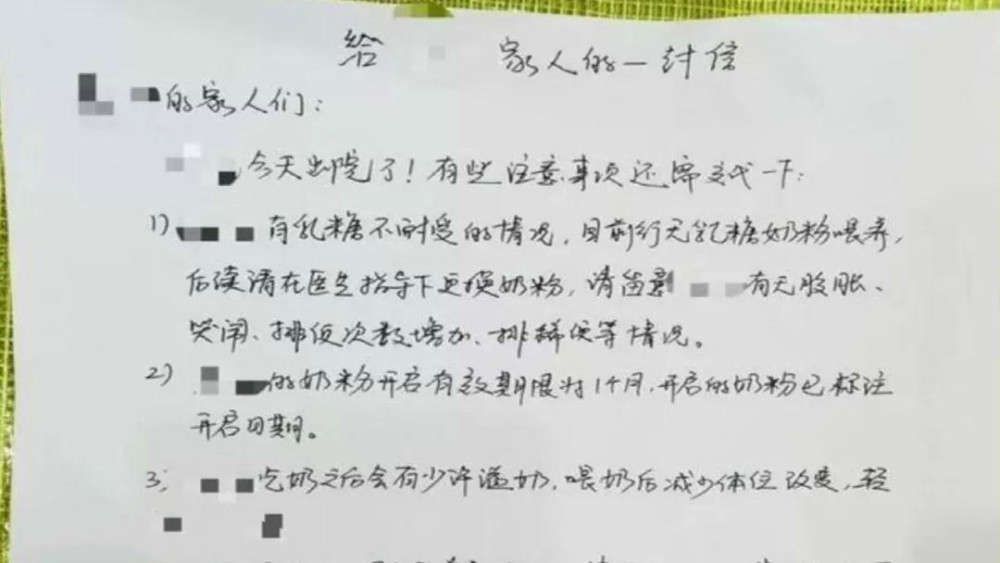 给 家人的一封信
的家人们：
今天出院了！有些注意事项还需交代一下：
1) 有乳糖不耐受的情况，目前行无乳糖奶粉喂养，
后续请在医生指导下更换奶粉，请留意 有无腹胀、
哭闹、排便次数增加、排稀便等情况。
2) 的奶粉开启有效期限为1个月，开启的奶粉已标注
开启日期。
3; 吃奶之后会有少许溢奶，喂奶后减少体位改变，轻